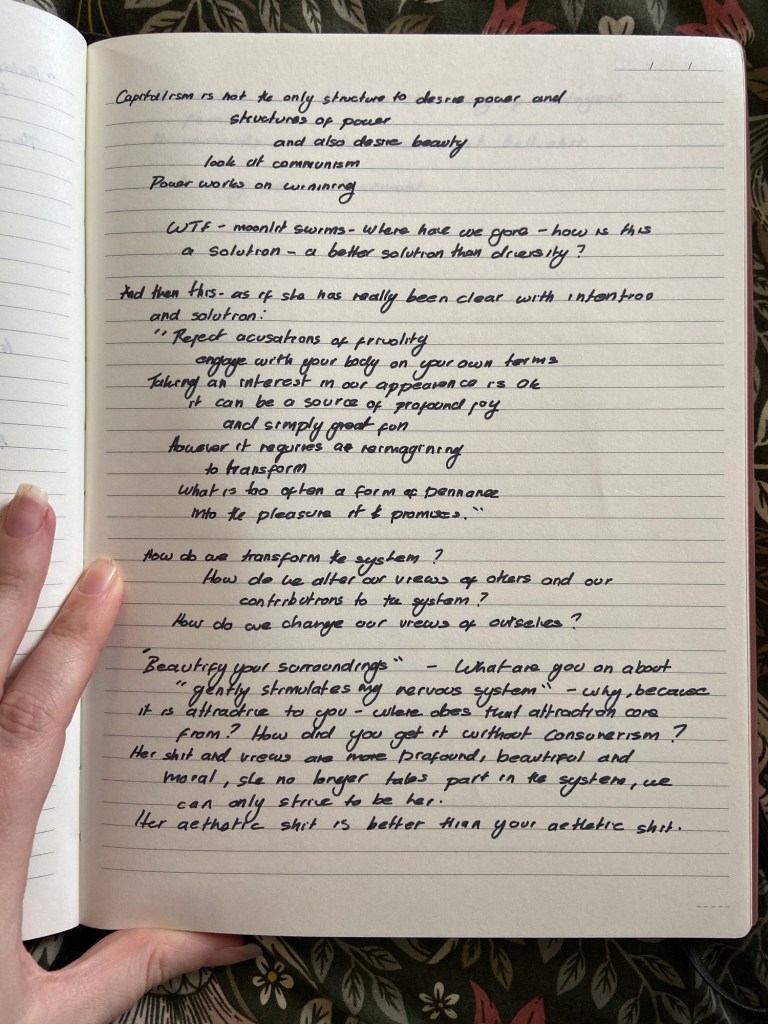 Capitalism is not the only structure to desire power and
structures of power
and also desire beauty
look at communism
Power works on winining
WTF - moonlit swims - where have we gone - how is this
a solution - a better solution than diversity?
And then this - as if she has really been clear with intention
and solution:
"Reject acusations of frivolity
engage with your body on your own terms
Taking an interest in our appearance is ok
it can be a source of profound joy
and simply great fun
however it requires a reimagining
to transform
what is too often a form of pennance
into the pleasure it promises."
How do we transform the system?
How do we alter our views of others and our
contributions to the system?
How do we change our views of ourselves?
"Beautify your surroundings" - What are you on about
"gently stimulates my nervous system" - why, because
it is attractive to you - where does that attraction come
from? How did you get it without consumerism?
Her shit and views are more profound, beautiful and
moral, she no longer takes part in the system, we
can only strive to be her.
Her aethetic shit is better than your aethetic shit.